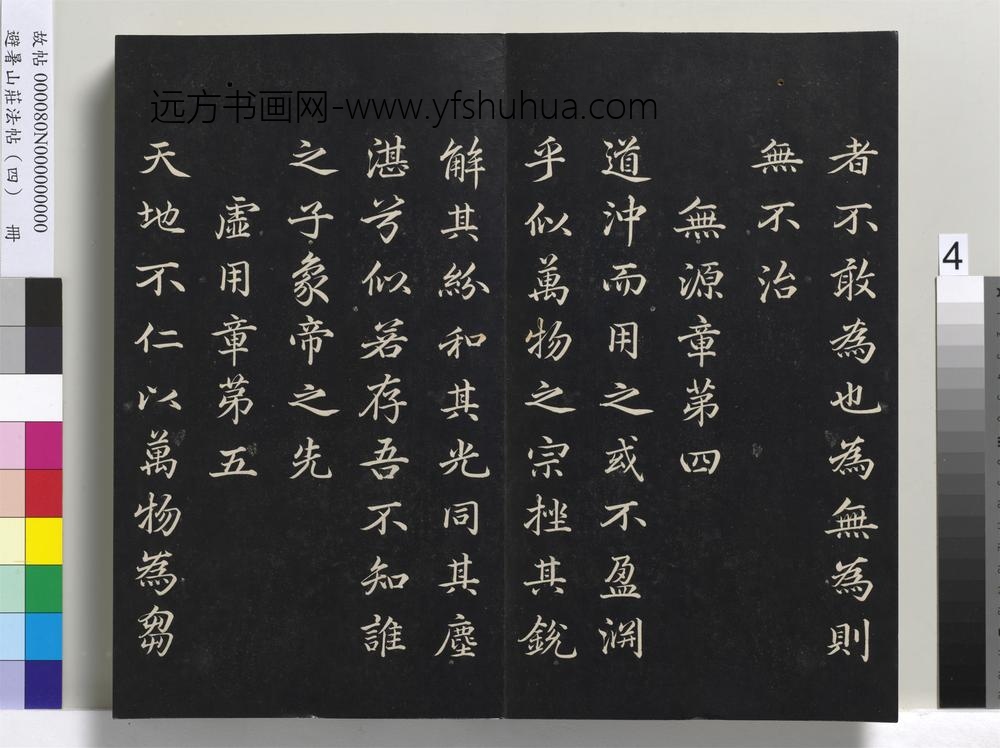 者不敢為也為無為則
無不治
無源章第四
道沖而用之或不盈淵
乎似萬物之宗挫其銳
解其紛和其光同其塵
湛兮似若存吾不知誰
之子象帝之先
虛用章第五
天地不仁以萬物為芻
远方书画网-www.yfshuhua.com
故帖 000080N000000000
避暑山莊法帖(四) 冊
4